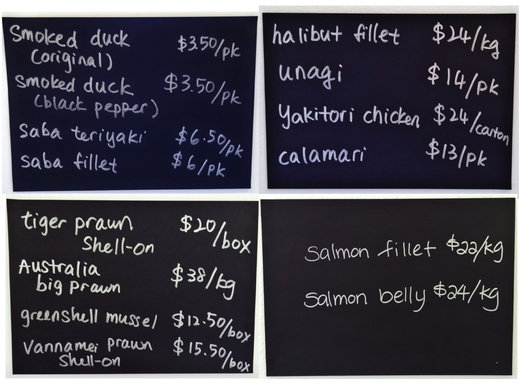 Smoked duck $3.50/pk
(original)
Smoked duck $3.50/pk
(black pepper)
Saba teriyaki $6.50/pk
Saba fillet $6/pk
halibut fillet $24/kg
unagi $14/pk
Yakitori chicken $24/carton
calamari $13/pk
tiger prawn $20/box
Shell-on
Australia $38/kg
big prawn
greenshell mussel $12.50/box
Vannamei prawn $15.50/box
Shell-on
Salmon fillet $22/kg
Salmon belly $24/kg